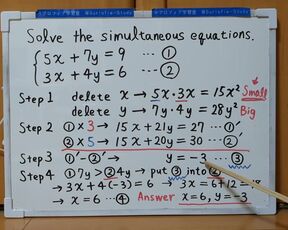 Solve the simultaneous equations.
5x + 7y = 9 ... ①
3x + 4y = 6 ... ②
Step 1 delete x → 5x・3x = 15x² Small
delete y → 7y・4y = 28y² Big
Step 2 ① × 3 → 15x + 21y = 27 ... ①'
② × 5 → 15x + 20y = 30 ... ②'
Step 3 ①' - ②' → y = -3 ... ③
Step 4 ① 7y > ② 4y → put ③ into ②
→ 3x + 4(-3) = 6 → 3x = 6 + 12 = 18
→ x = 6 ... ④ Answer x = 6, y = -3